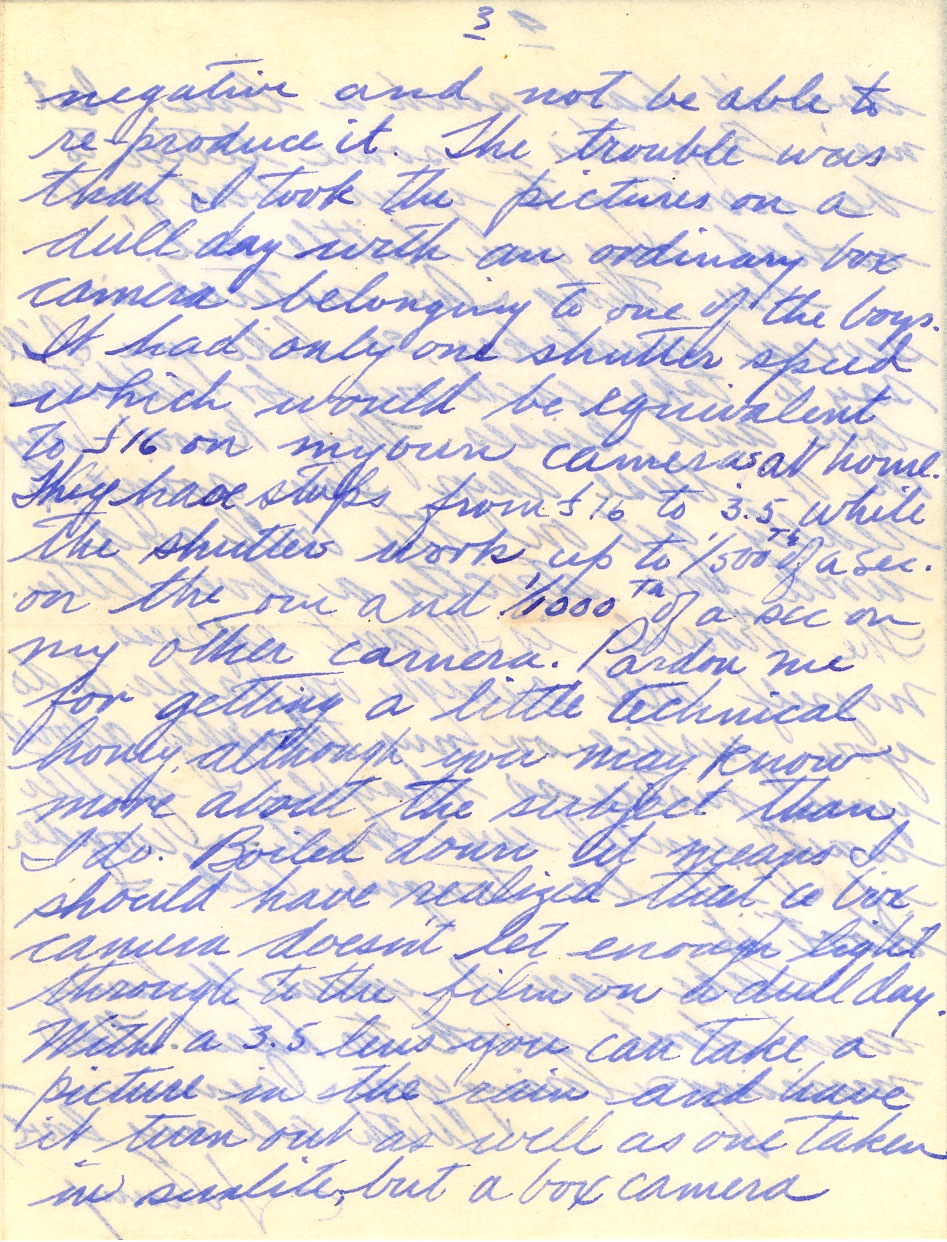 3
negative and not be able to
re-produce it. The trouble was
that I took the pictures on a
dull day with an ordinary box
camera belonging to one of the boys.
It had only one shutter speed
which would be equivalent
to f16 on my own cameras at home.
They have stops from f16 to 3.5 while
the shutters work up to 1/500th of a sec.
on the one and 1/1000th of a sec on
my other camera. Pardon me
for getting a little technical
honey, although you may know
more about the subject than
I do. Boiled down it means I
should have realized that a box
camera doesn't let enough light
through to the film on a dull day.
With a 3.5 lens you can take a
picture in the rain and have
it turn out as well as one taken
in sunlite, but a box camera